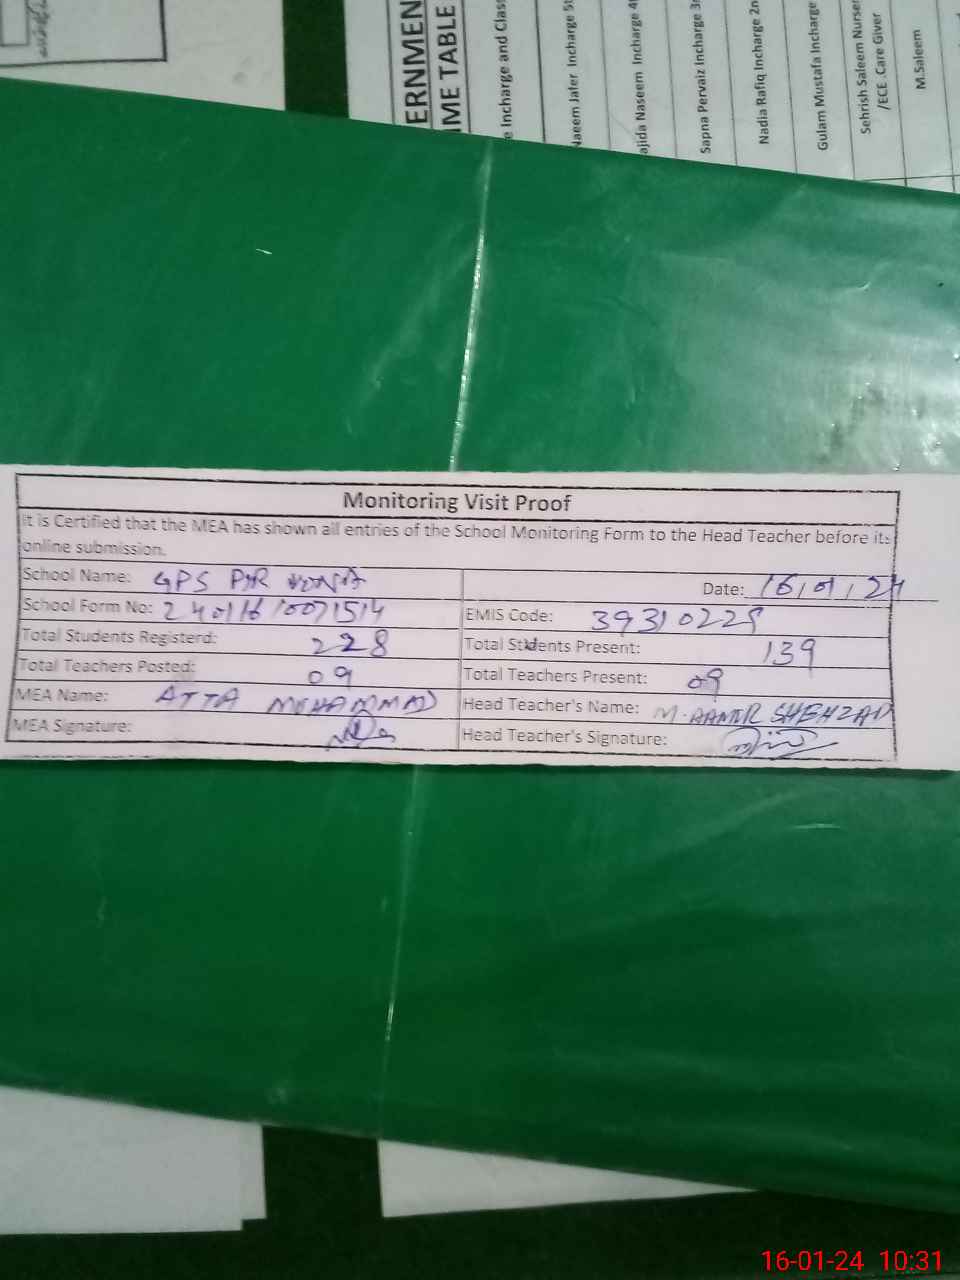 ERNMEN
IME TABLE
e Incharge and Class
Naeem Jafer Incharge 5t
ajida Naseem Incharge 4t
Sapna Pervaiz Incharge 3r
Nadia Rafiq Incharge 2n
Gulam Mustafa Incharge
Sehrish Saleem Nurser
/ECE .Care Giver
M.Saleem
Monitoring Visit Proof
It is Certified that the MEA has shown all entries of the School Monitoring Form to the Head Teacher before its
online submission.
School Name: GPS PIR Date: 16,01,24
School Form No: 24011610071514 EMIS Code: 39310229
Total Students Registerd: 228 Total Students Present: 139
Total Teachers Posted: 09 Total Teachers Present: 09
MEA Name: ATTA MOHAMMAD Head Teacher's Name: M. AAMIR SHEHZAD
MEA Signature: Head Teacher's Signature:
16-01-24 10:31